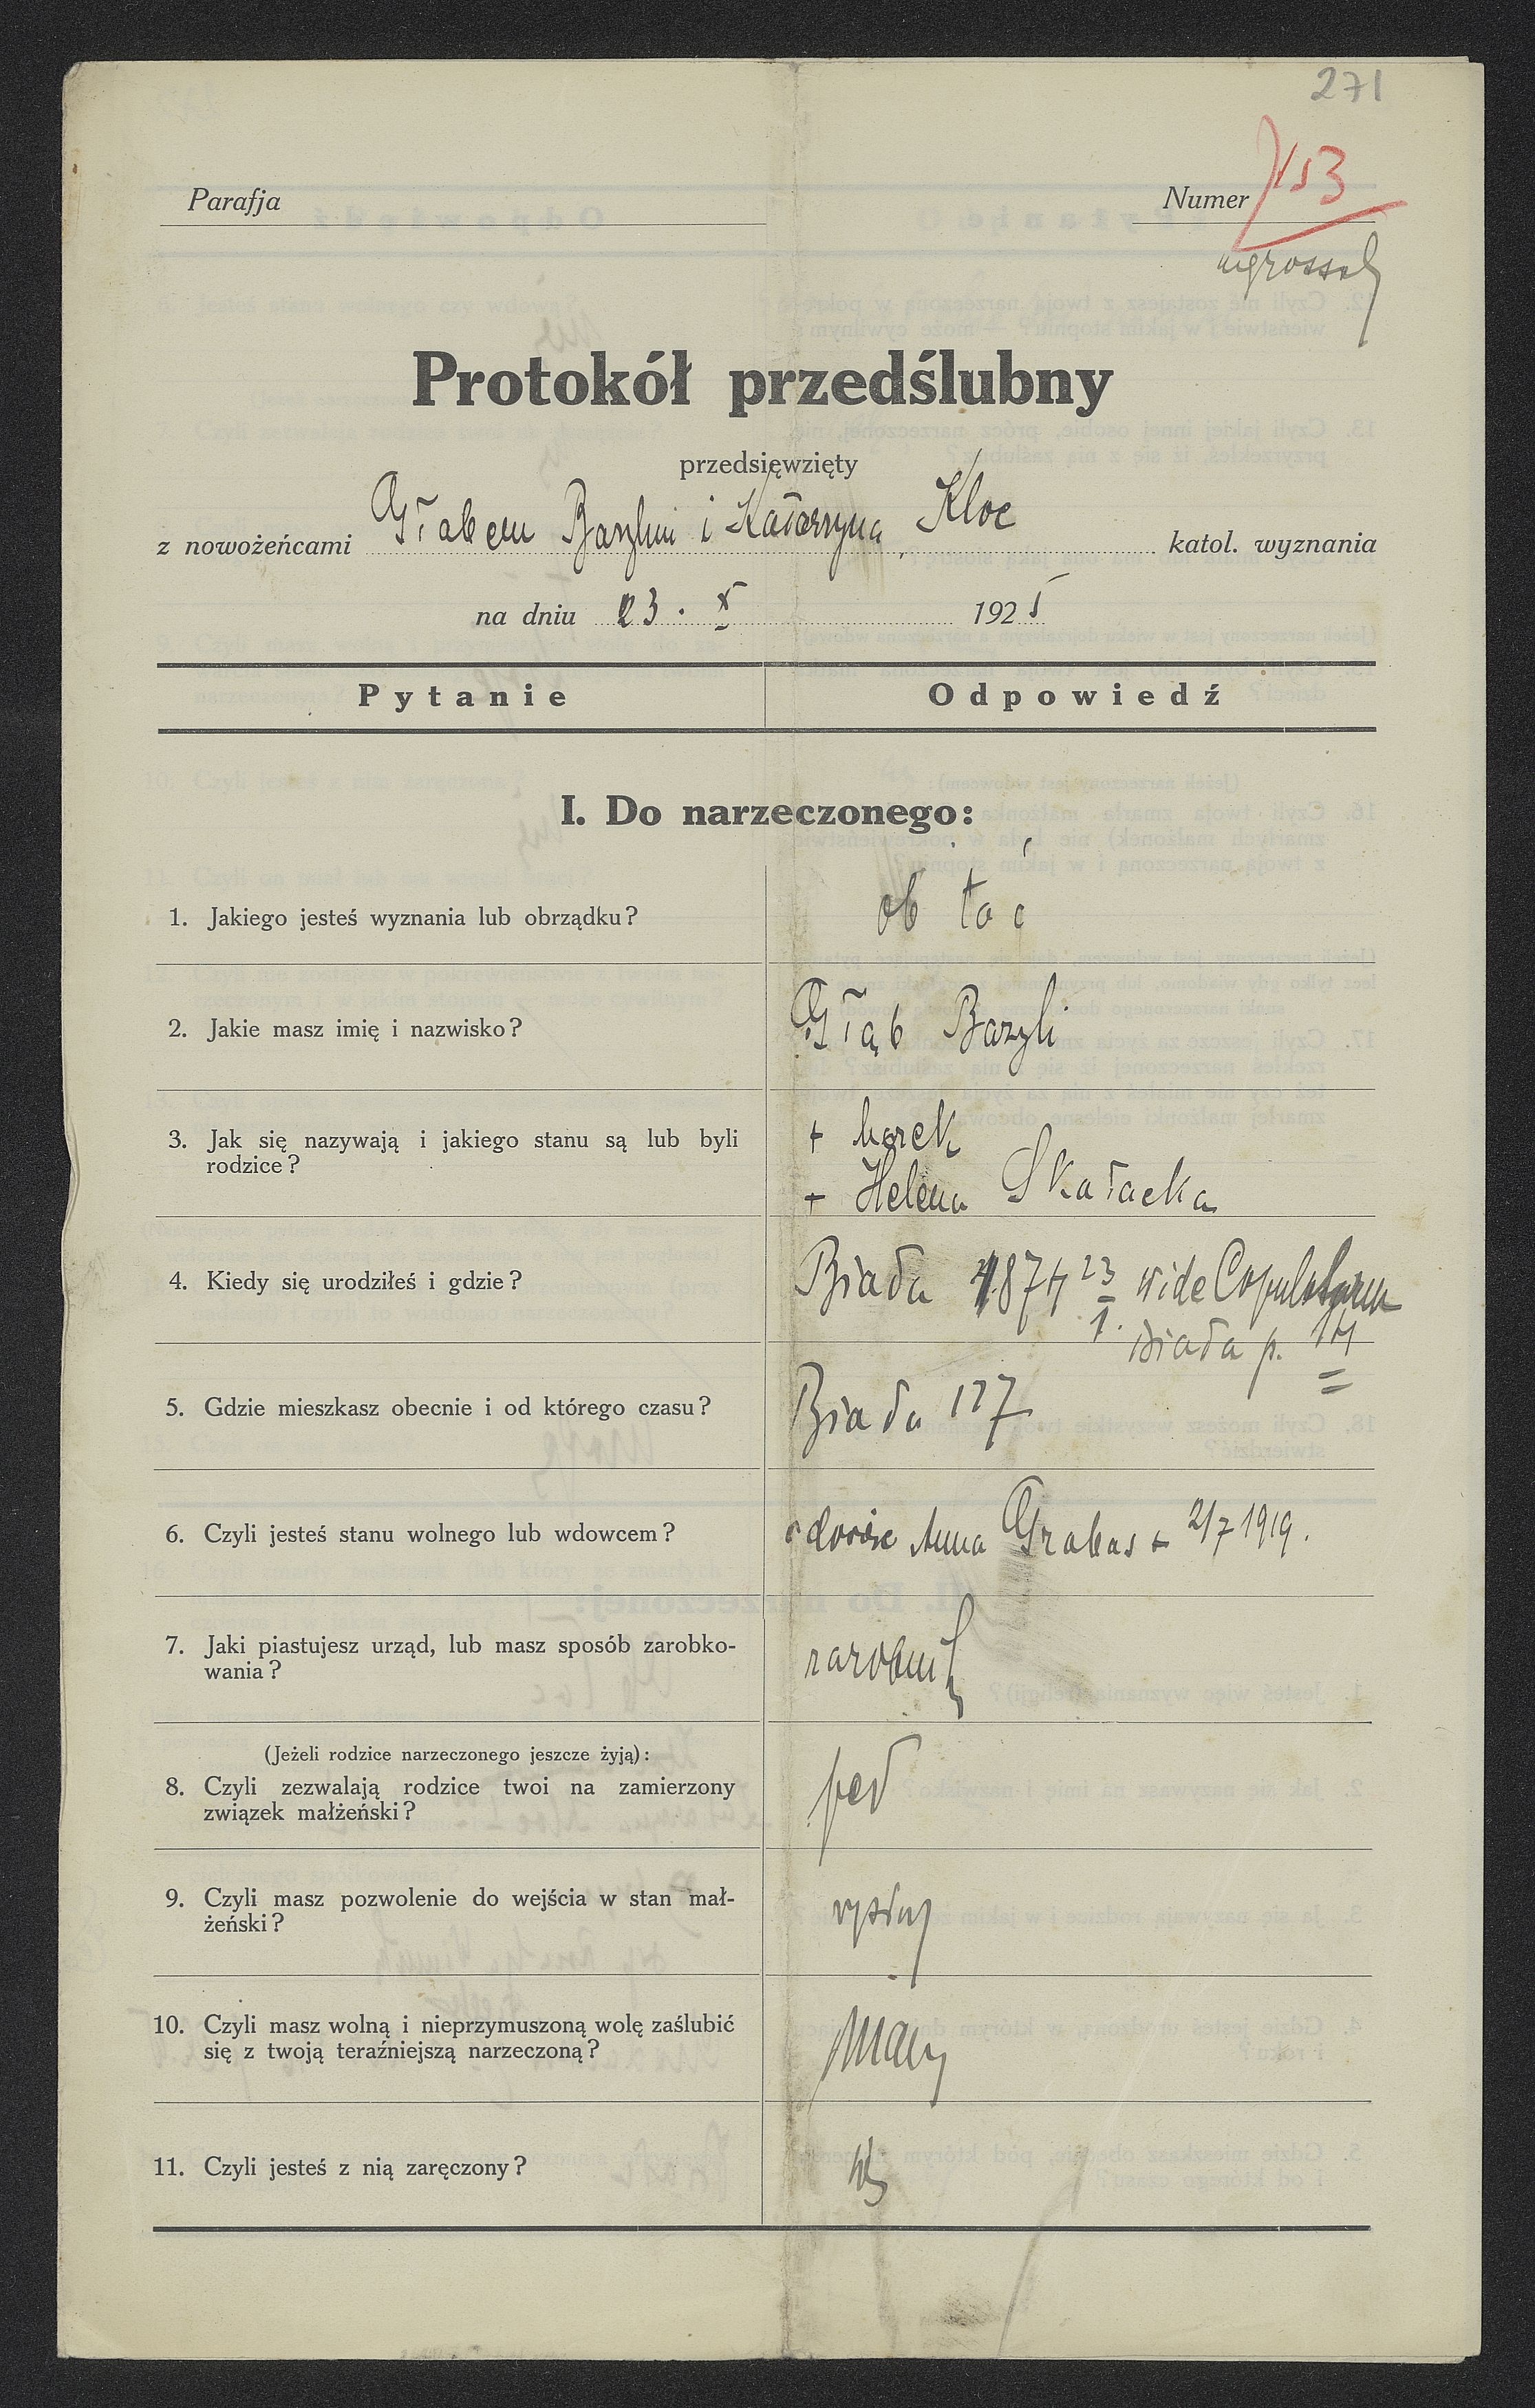 271
Parafja
Numer 153
ingross
Protokół przedślubny
przedsięwzięty
z nowożeńcami Głąbem Bazylim i Katarzyną Kloc katol. wyznania
na dniu 23. X 1925
Pytanie Odpowiedź
I. Do narzeczonego:
1. Jakiego jesteś wyznania lub obrządku? ob łać
2. Jakie masz imię i nazwisko? Głąb Bazyli
3. Jak się nazywają i jakiego stanu są lub byli + Marek
rodzice? + Helena Skałacka
4. Kiedy się urodziłeś i gdzie? Biała 1874 23/1. vide Copulatorum
Biała p. 14
5. Gdzie mieszkasz obecnie i od którego czasu? Biała 177
6. Czyli jesteś stanu wolnego lub wdowcem? Anna Grabas + 2/7 1919.
7. Jaki piastujesz urząd, lub masz sposób zarobko-
wania? zarobnik
(Jeżeli rodzice narzeczonego jeszcze żyją):
8. Czyli zezwalają rodzice twoi na zamierzony
związek małżeński?
9. Czyli masz pozwolenie do wejścia w stan mał-
żeński?
10. Czyli masz wolną i nieprzymuszoną wolę zaślubić
się z twoją teraźniejszą narzeczoną? Mam
11. Czyli jesteś z nią zaręczony?